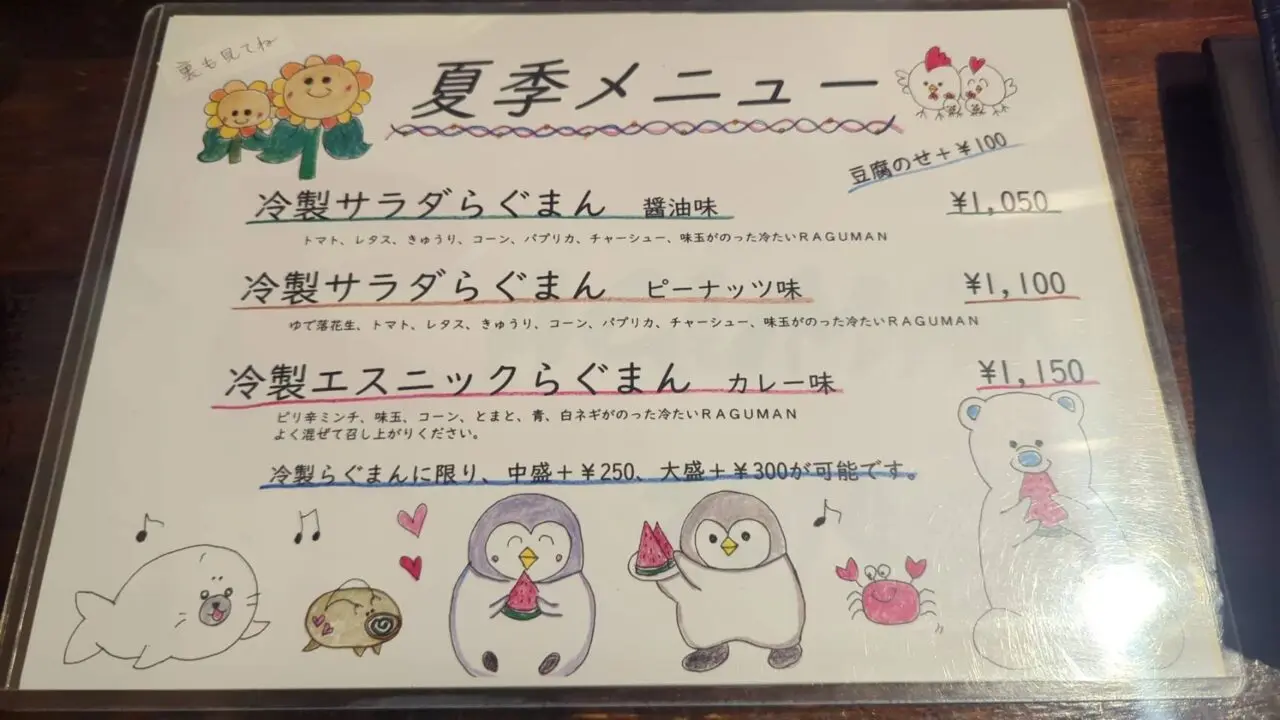 裏も見てね
夏季メニュー
豆腐のせ+¥100
冷製サラダらぐまん 醤油味 ¥1,050
トマト、レタス、きゅうり、コーン、パプリカ、チャーシュー、味玉がのった冷たいRAGUMAN
冷製サラダらぐまん ピーナッツ味 ¥1,100
ゆで落花生、トマト、レタス、きゅうり、コーン、パプリカ、チャーシュー、味玉がのった冷たいRAGUMAN
冷製エスニックらぐまん カレー味 ¥1,150
ピリ辛ミンチ、味玉、コーン、とまと、青、白ネギがのった冷たいRAGUMAN
よく混ぜて召し上がりください。
冷製らぐまんに限り、中盛+¥250、大盛+¥300が可能です。